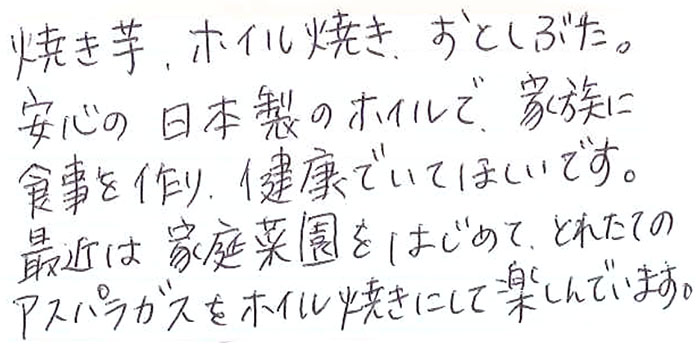 焼き芋、ホイル焼き、おとしぶた。
安心の日本製のホイルで、家族に
食事を作り、健康でいてほしいです。
最近は家庭菜園をはじめて、とれたての
アスパラガスをホイル焼きにして楽しんでいます。